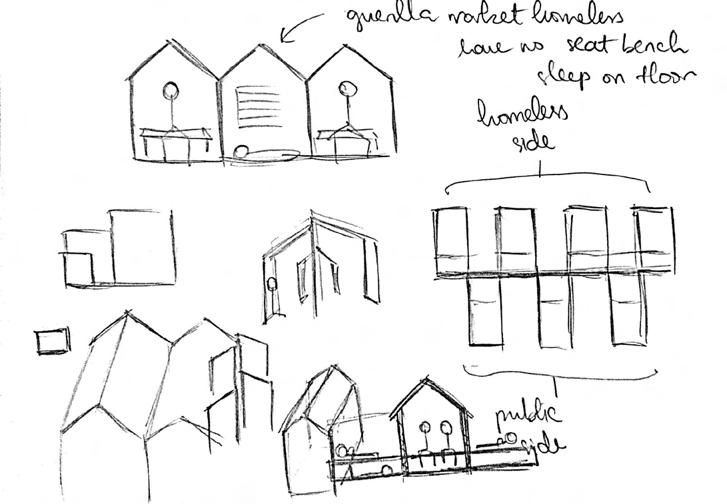 guerilla market homeless
have no seat bench
sleep on floor
homeless
side
public
side